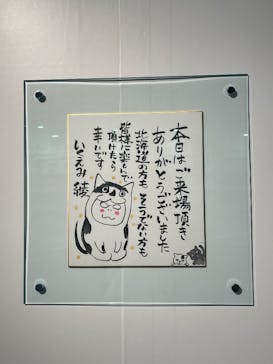 本日はご来場頂き
ありがとうございました
北海道の方も そうでない方も
皆様に楽しんで
頂けたら
幸いです。
いくえみ綾